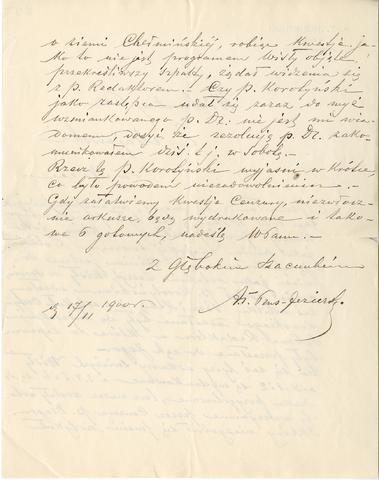 o ziemi Chełmińskiéj, robiąc kwestję, ja-
ko to nie jest programem Wisły objęte
przekreśliwszy szpalty, żądał widzenia się
z p. Redaktorem. — Czy p. Korotyński
jako zastępca udał się zaraz do wyż
wzmiankowanego p. Dr. nie jest mi wia-
domem, dosyć że rezolucją p. Dr. zako-
munikowałem dziś t. j. w Sobotę. —
Rzecz tę p. Korotyński wyjaśni w Krótce,
co było powodem niezadowolnienia. —
Gdy załatwiemy kwestję Cenzury, niezwłocz-
nie arkusze, będą wydrukowane i tako-
we 6 gotowych, nadeślę WPanu. —
Z Głębokim Szacunkiem
17/11 1900 r.